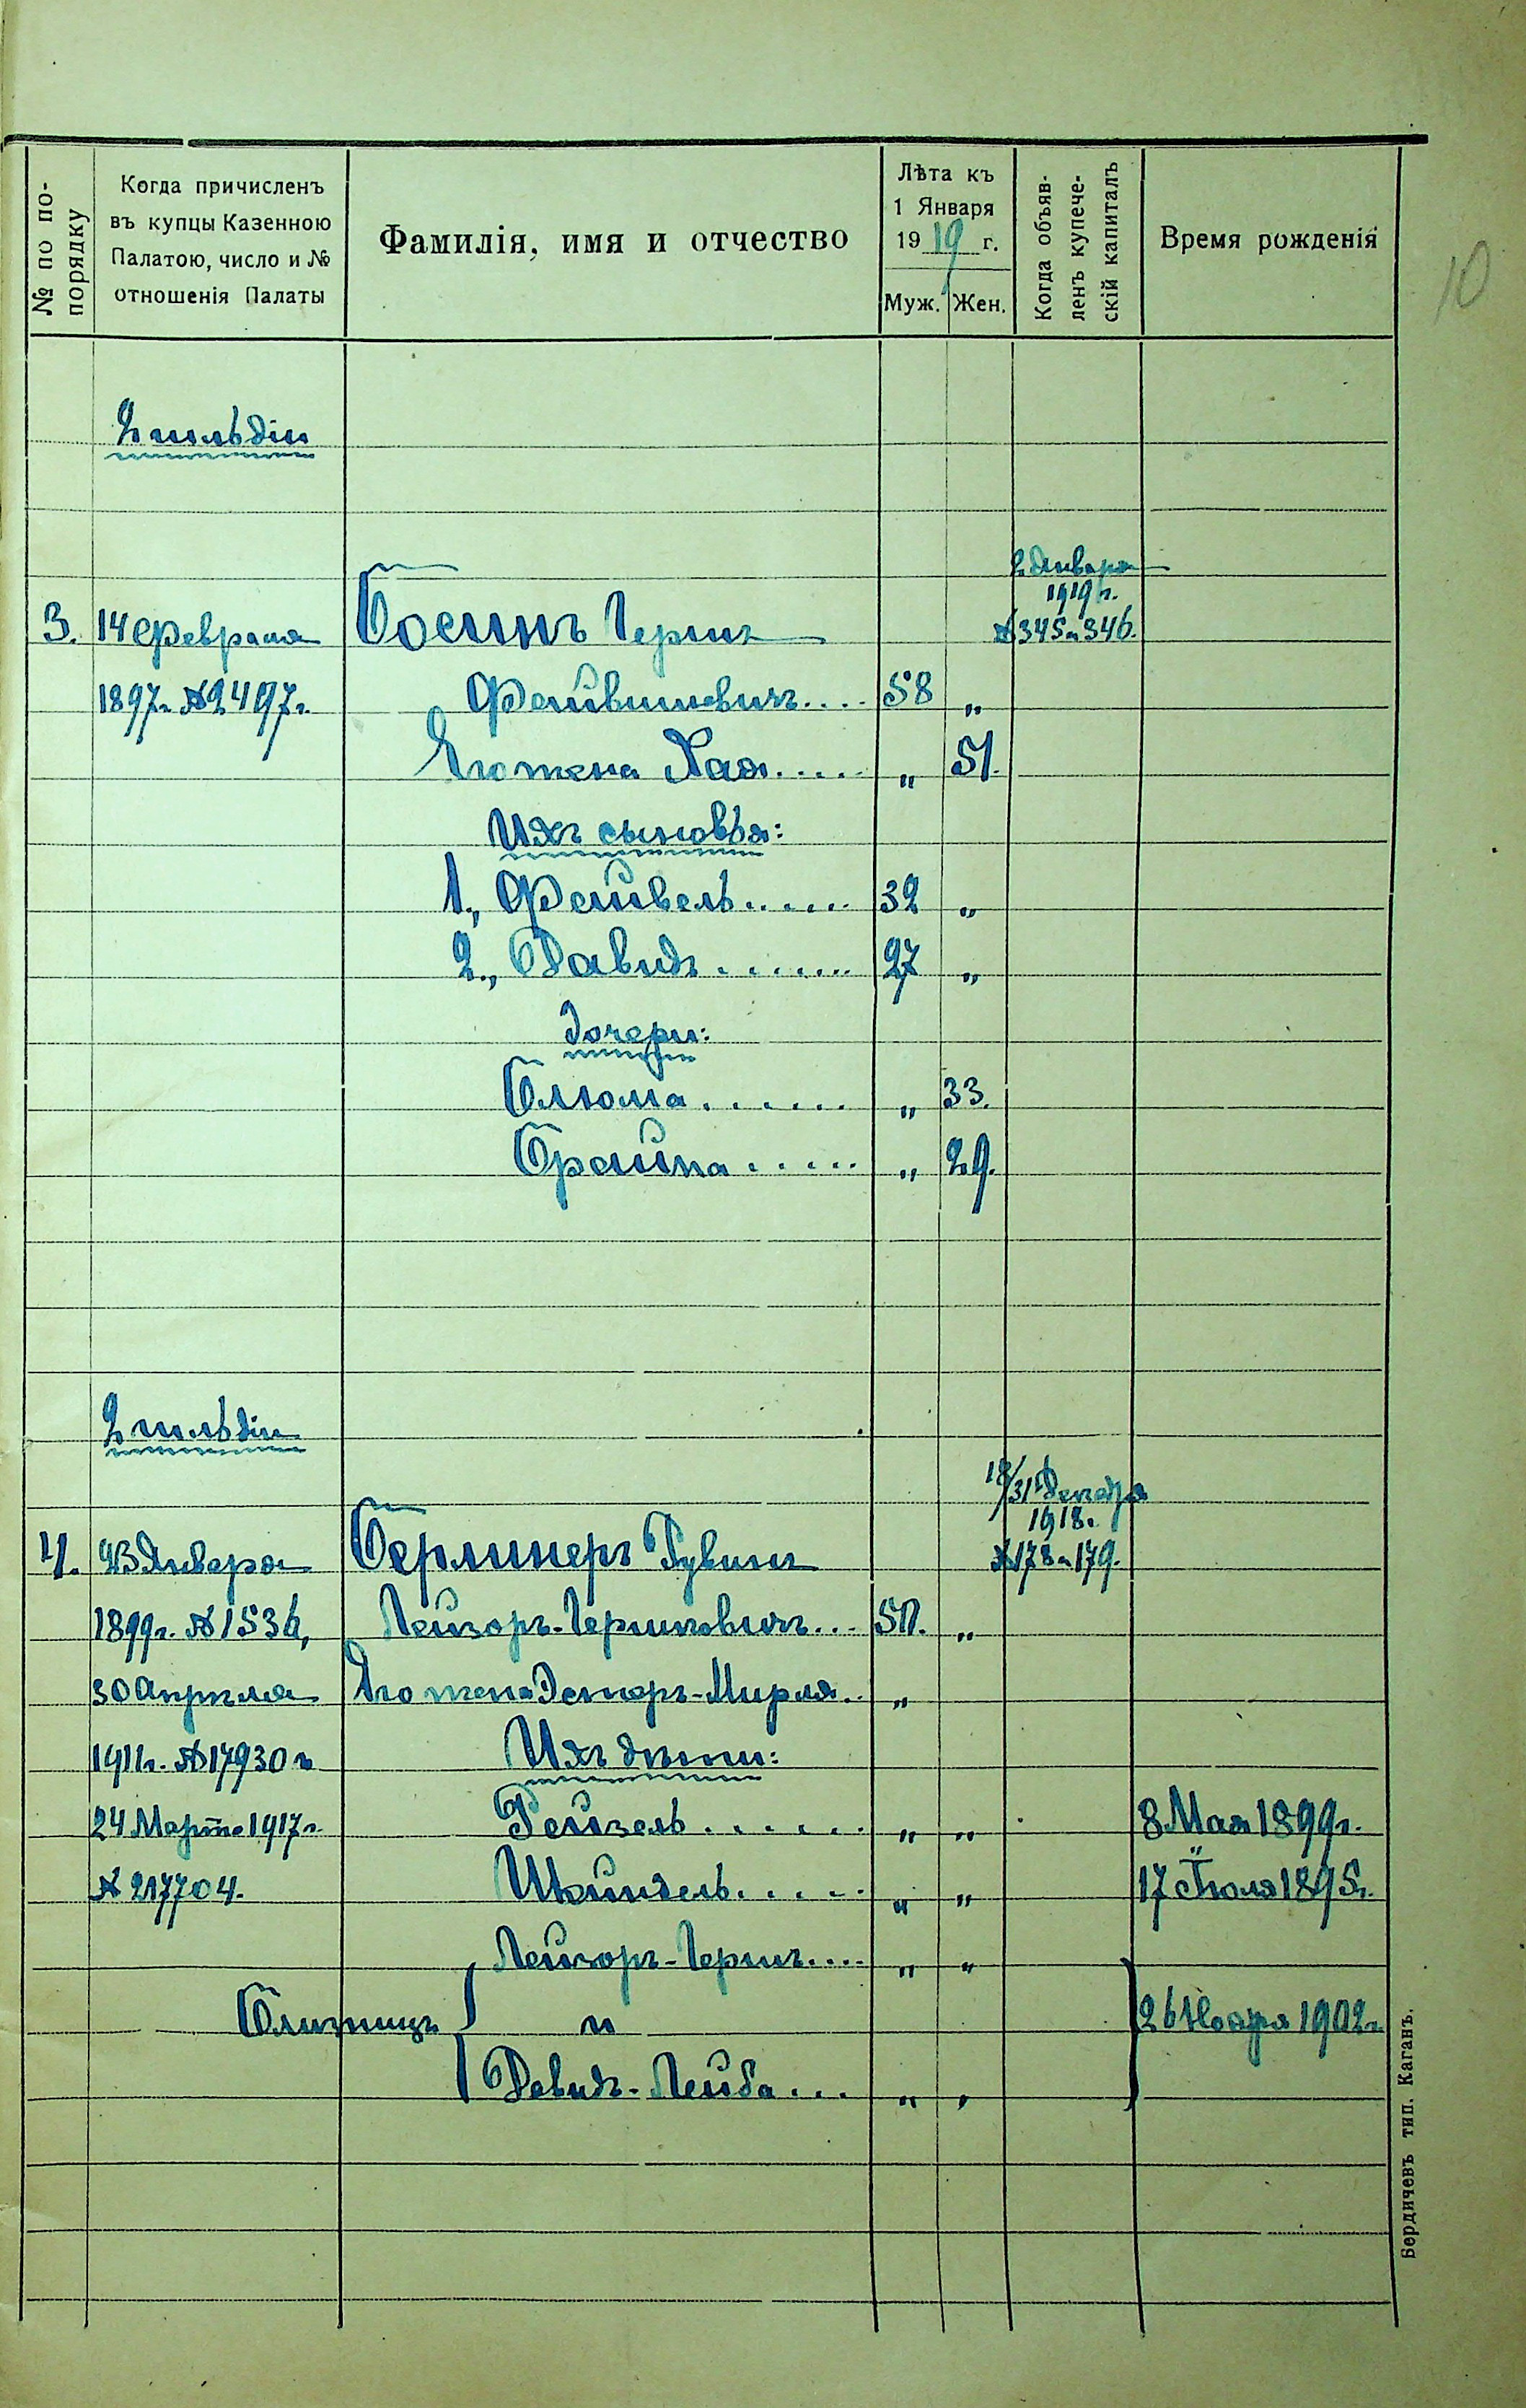 № по по-
порядку
Когда причисленъ
въ купцы Казенною
Палатою, число и №
отношенія Палаты
Фамилія, имя и отчество
Лѣта къ
1 Января
1919 г.
Муж. Жен.
Когда объяв-
ленъ купече-
скій капиталъ
Время рожденія
10
2 гильдіи
2 Января
1919 г.
№ 345 и 346.
3. 14 Февраля Босинъ Гершъ
1897 г. № 2497 г. Фейвишевичъ.... 58 „
Его жена Хая..... „ 51.
Ихъ сыновья:
1., Фейвель...... 32 „
2., Давидъ....... 27 „
дочери:
Блюма....... „ 33.
Брайна..... „ 29.
2 гильдіи
18/31 Декабря
1918 г.
№ 178 и 179.
4. 23 Января Берлинеръ Рувинъ
1899 г. № 1536, Лейзоръ-Гершковичъ... 50. „
30 Апрѣля Его жена Эстеръ-Мирля.. „
1911 г. № 17930 и Ихъ дѣти:
24 Марта 1917 г. Рейзель...... „ „ 8 Мая 1899 г.
№ 217704. Шейндель..... „ „ 17 Іюля 1895 г.
Лейзоръ-Гершъ.... „ „
Близнецы и 26 Ноября 1902 г.
Давидъ-Лейба... „ „
Бердичевъ тип. Каганъ.